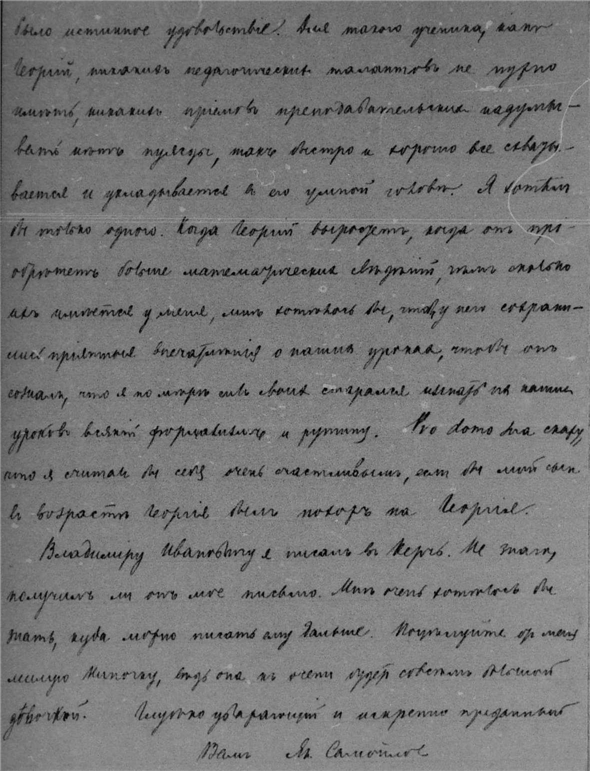 было истинное удовольствіе. Для такого ученика, какъ
Георгій, никакихъ педагогическихъ талантовъ не нужно
имѣть, никакихъ пріемовъ преподавательскихъ надумы-
вать нѣтъ нужды, такъ быстро и хорошо все схваты-
вается и укладывается въ его умной головѣ. Я хотѣлъ
бы только одного. Когда Георгій выростетъ, когда онъ прі-
обрѣтетъ больше математическихъ свѣдѣній, чѣмъ сколько
ихъ имѣется у меня, мнѣ хотѣлось бы, чтобы у него сохрани-
лись пріятныя впечатлѣнія о нашихъ урокахъ, чтобы онъ
созналъ, что я по мѣрѣ силъ своихъ старался изгнать изъ нашихъ
уроковъ всякій формализмъ и рутину. Pro domo sua скажу,
что я считалъ бы себя очень счастливымъ, если бы мой сынъ
въ возрастѣ Георгія былъ похожъ на Георгія.
Владиміру Ивановичу я писалъ въ Керчь. Не знаю,
получилъ ли онъ мое письмо. Мнѣ очень хотѣлось бы
знать, куда можно писать ему дальше. Поцѣлуйте отъ меня
милую Ниночку, вѣдь она къ осени будетъ совсѣмъ большой
дѣвочкой. Глубоко уважающій и искренно преданный
Вамъ Як. Самойловъ